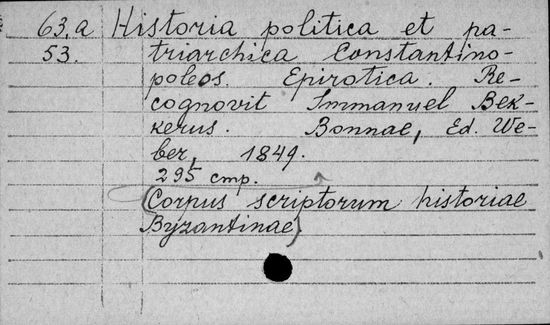 63,a Historia politica et pa-
53. triarchica Constantino-
poleos. Epirotica. Re-
cognovit Immanuel Bek-
kerus. Bonnae, Ed. We-
ber, 1849.
295 стр.
(Corpus scriptorum historiae
Byzantinae)